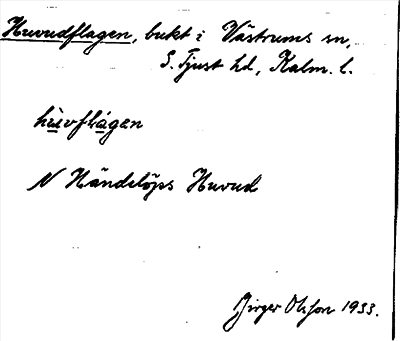 Huvudflagen, bukt i Västrums sn,
S. Tjust hd, Kalm. l.
hùvflágen
N Händelöps Huvud
Birger Olsson 1933.